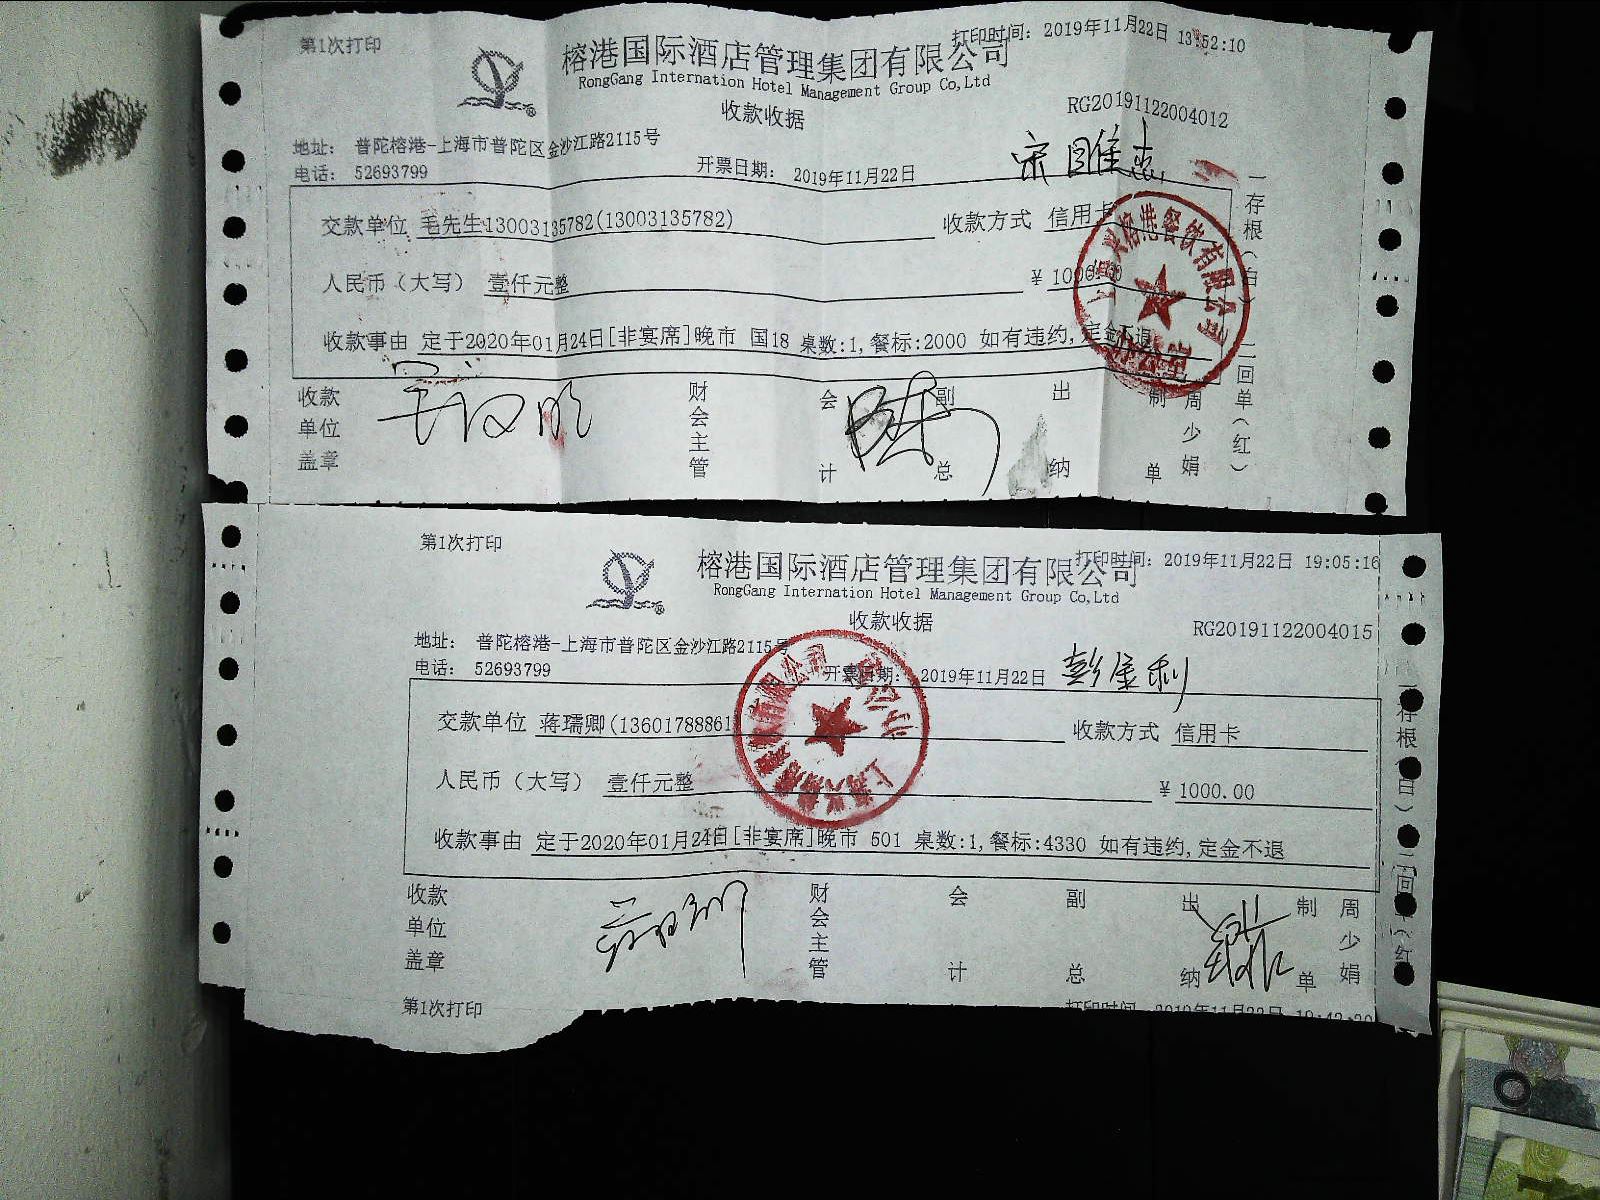 第1次打印
打印时间: 2019年11月22日 13:52:10
榕港国际酒店管理集团有限公司
RongGang Internation Hotel Management Group Co,Ltd
收款收据
RG20191122004012
地址: 普陀榕港-上海市普陀区金沙江路2115号
电话: 52693799
开票日期: 2019年11月22日
交款单位 毛先生13003135782(13003135782)
收款方式 信用卡
人民币(大写) 壹仟元整
¥ 1000.00
收款事由 定于2020年01月24日[非宴席]晚市 国18 桌数:1,餐标:2000 如有违约,定金不退
收款单位盖章
财会主管
会计
副总
出纳
制单
周少娟
一存根(白) 二回单(红)
第1次打印
打印时间: 2019年11月22日 19:05:16
榕港国际酒店管理集团有限公司
RongGang Internation Hotel Management Group Co,Ltd
收款收据
RG20191122004015
地址: 普陀榕港-上海市普陀区金沙江路2115号
电话: 52693799
开票日期: 2019年11月22日
交款单位 蒋瑀卿(13601788861
收款方式 信用卡
人民币(大写) 壹仟元整
¥ 1000.00
收款事由 定于2020年01月24日[非宴席]晚市 501 桌数:1,餐标:4330 如有违约,定金不退
收款单位盖章
财会主管
会计
副总
出纳
制单
周少娟
存根(白) 二回单(红
第1次打印
打印时间: 2019年11月22日